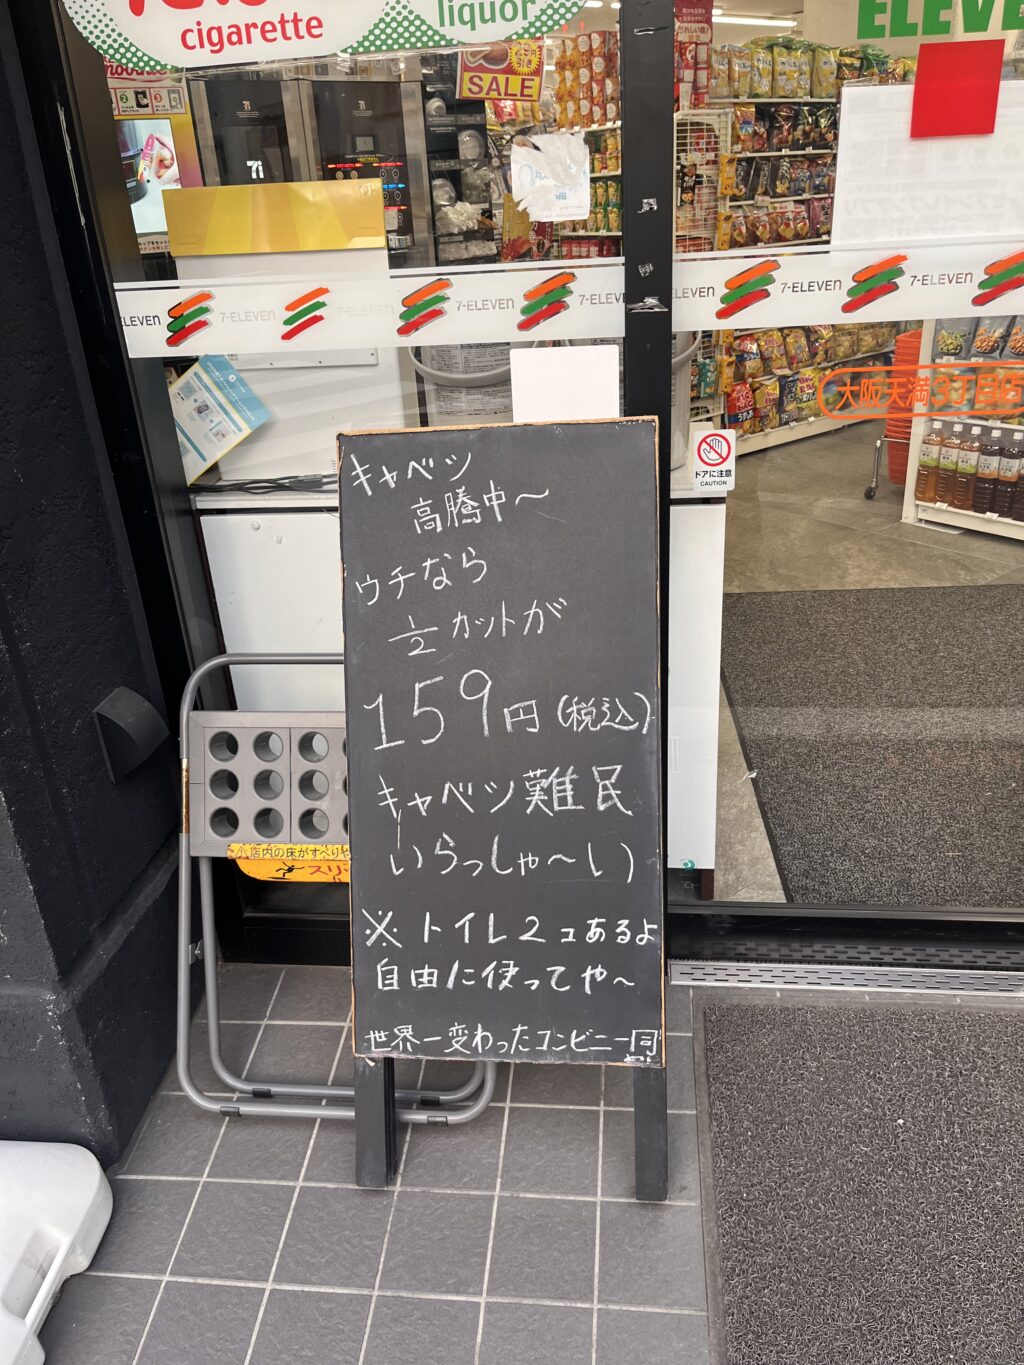 cigarette
liquor
ELEVEN
SALE
7-ELEVEN
7-ELEVEN
7-ELEVEN
7-ELEVEN
7-ELEVEN
大阪天満3丁目店
ドアに注意
CAUTION
キャベツ
高騰中〜
ウチなら
1/2 カットが
159円(税込)
キャベツ難民
いらっしゃ〜い)
※トイレ2コあるよ
自由に使ってや〜
世界一変わったコンビニ一同
店内の床がすべりや
スリッ